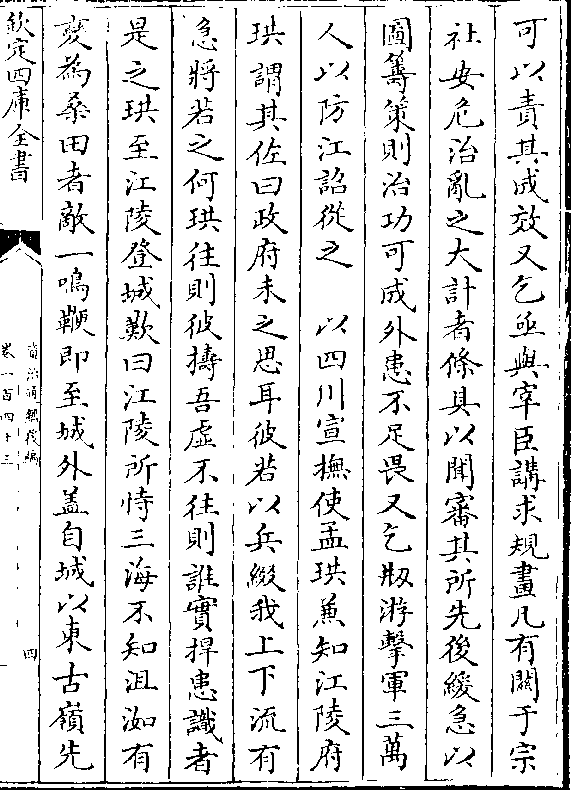 可以責其成效又乞亟與宰臣講求規畫凡有關于宗
社安危治亂之大計者條具以聞審其所先後緩急以
圖籌策則治功可成外患不足畏又乞刱游擊軍三萬
人以防江詔從之　以四川宣撫使孟珙兼知江陵府
珙謂其佐曰政府未之思耳彼若以兵綴我上下流有
急將若之何珙往則彼擣吾虛不往則誰實捍患識者
是之珙至江陵登城歎曰江陵所恃三海不知沮洳有
變為桑田者敵一鳴鞭即至城外蓋自城以東古嶺先
欽定四庫全書
資治通鑑後編
卷一百四十三
四